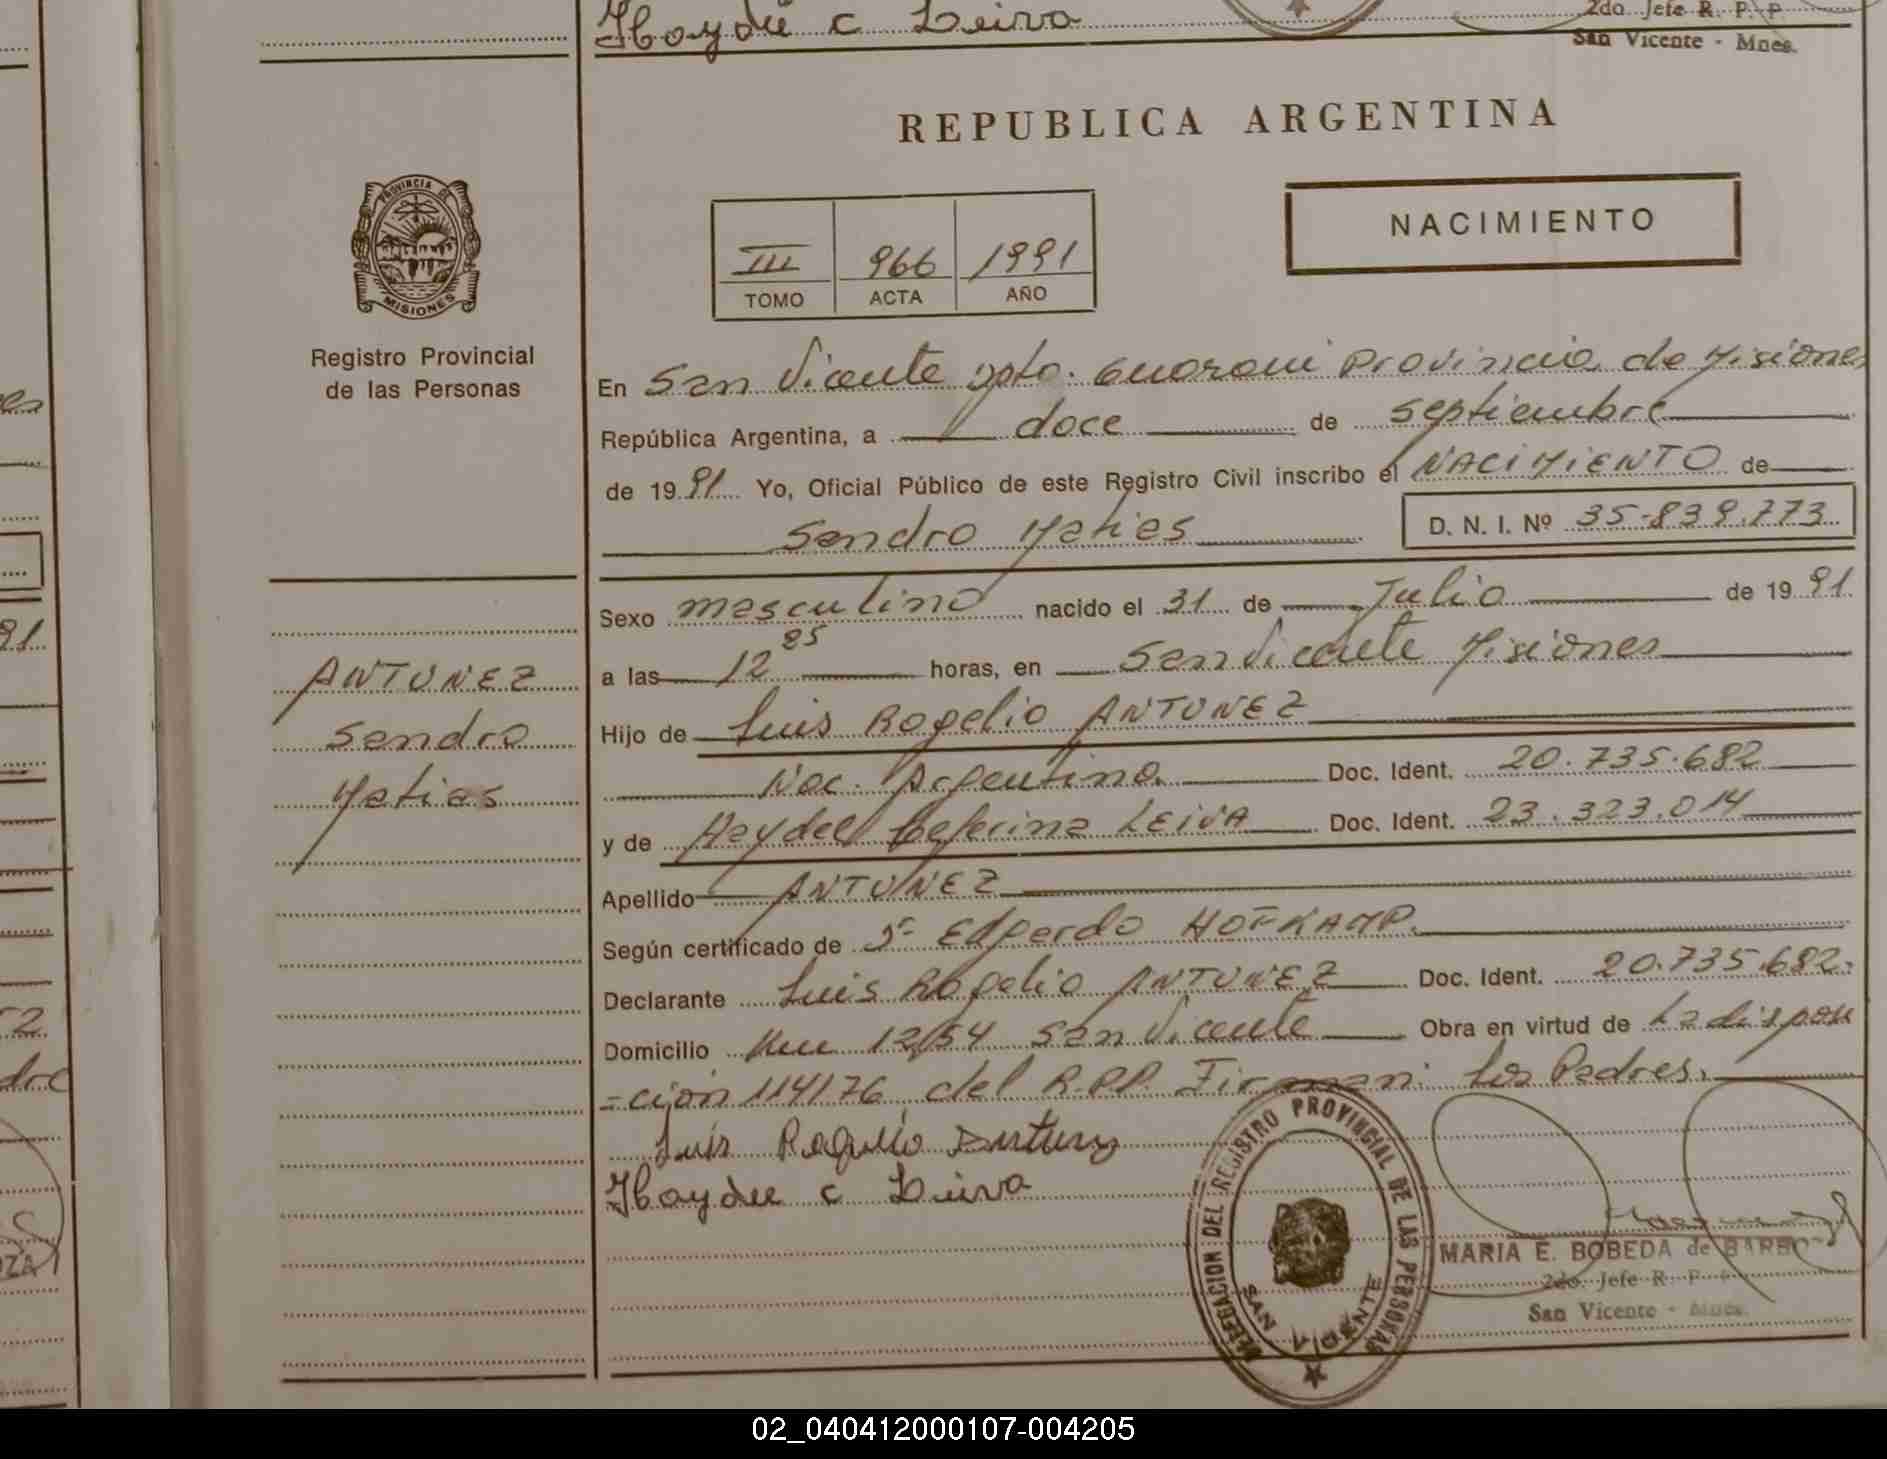 Haydeé C Leiva
2do Jefe R. P. P.
San Vicente - Mnes.
REPUBLICA ARGENTINA
NACIMIENTO
III 966 1991
TOMO ACTA AÑO
PROVINCIA DE MISIONES
Registro Provincial
de las Personas
En San Vicente Dpto. Guarani Provincia de Misiones
República Argentina, a doce de septiembre
de 1991 Yo, Oficial Público de este Registro Civil inscribo el NACIMIENTO de
Sandro Matias D. N. I. Nº 35.839.773
Sexo masculino nacido el 31 de Julio de 1991
a las 12 25 horas, en San Vicente Misiones
ANTUNEZ
Sandro
Matias
Hijo de Luis Rogelio ANTUNEZ
Nac. Argentina Doc. Ident. 20.735.682
y de Haydee Ceferina LEIVA Doc. Ident. 23.323.014
Apellido ANTUNEZ
Según certificado de Dr Edgardo HOFKAMP.
Declarante Luis Rogelio ANTUNEZ Doc. Ident. 20.735.682.
Domicilio Km 1254 San Vicente Obra en virtud de La dispos
=ción 114/76 del R.P.P. Firman: Los Padres.
Luis Rogelio Antunez
Haydeé C Leiva
DELEGACION DEL REGISTRO PROVINCIAL DE LAS PERSONAS
SAN VICENTE
MARIA E. BOBEDA de
2do. Jefe R. P. P.
San Vicente - Mnes.
02_040412000107-004205